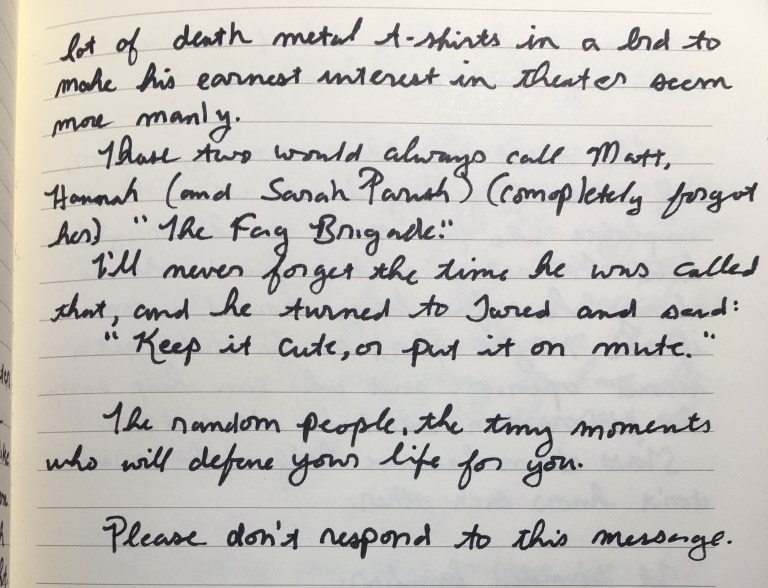 lot of death metal t-shirts in a bid to
make his earnest interest in theater seem
more manly.
These two would always call Matt,
Hannah (and Sarah Parish) (comopletely forgot
her) "The Fag Brigade."
I'll never forget the time he was called
that, and he turned to Jared and said:
"Keep it cute, or put it on mute."
The random people, the tiny moments
who will define your life for you.
Please don't respond to this message.